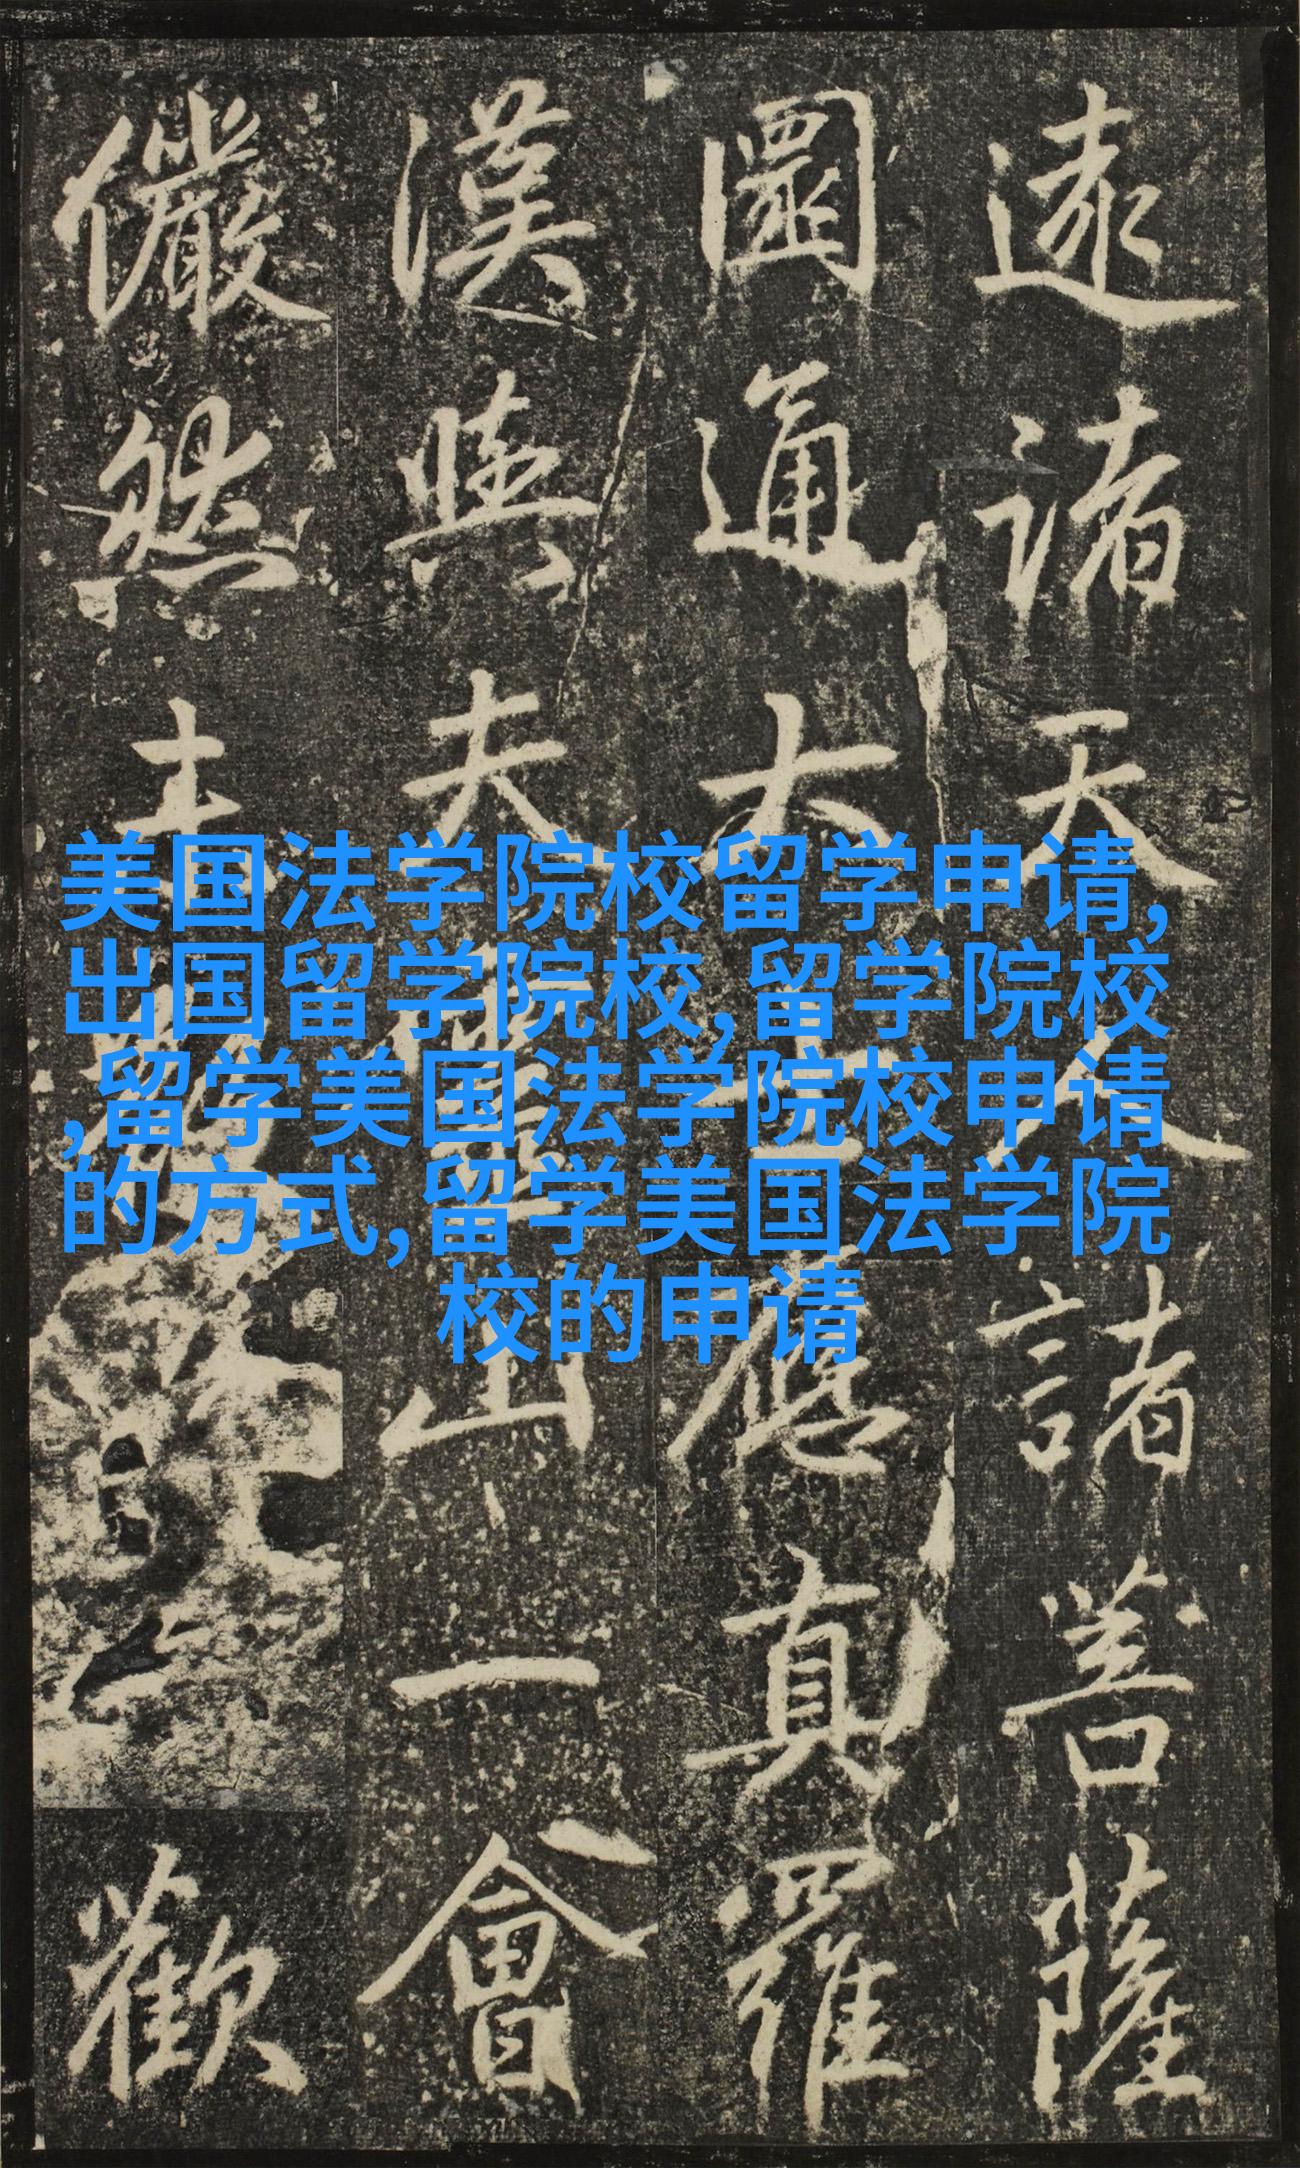 遠諸天人諸菩薩
圓通大士應真羅
漢與夫靈山一會
儼然未歡
美国法学院校留学申请,
出国留学院校,留学院校
,留学美国法学院校申请
的方式,留学美国法学院
校的申请